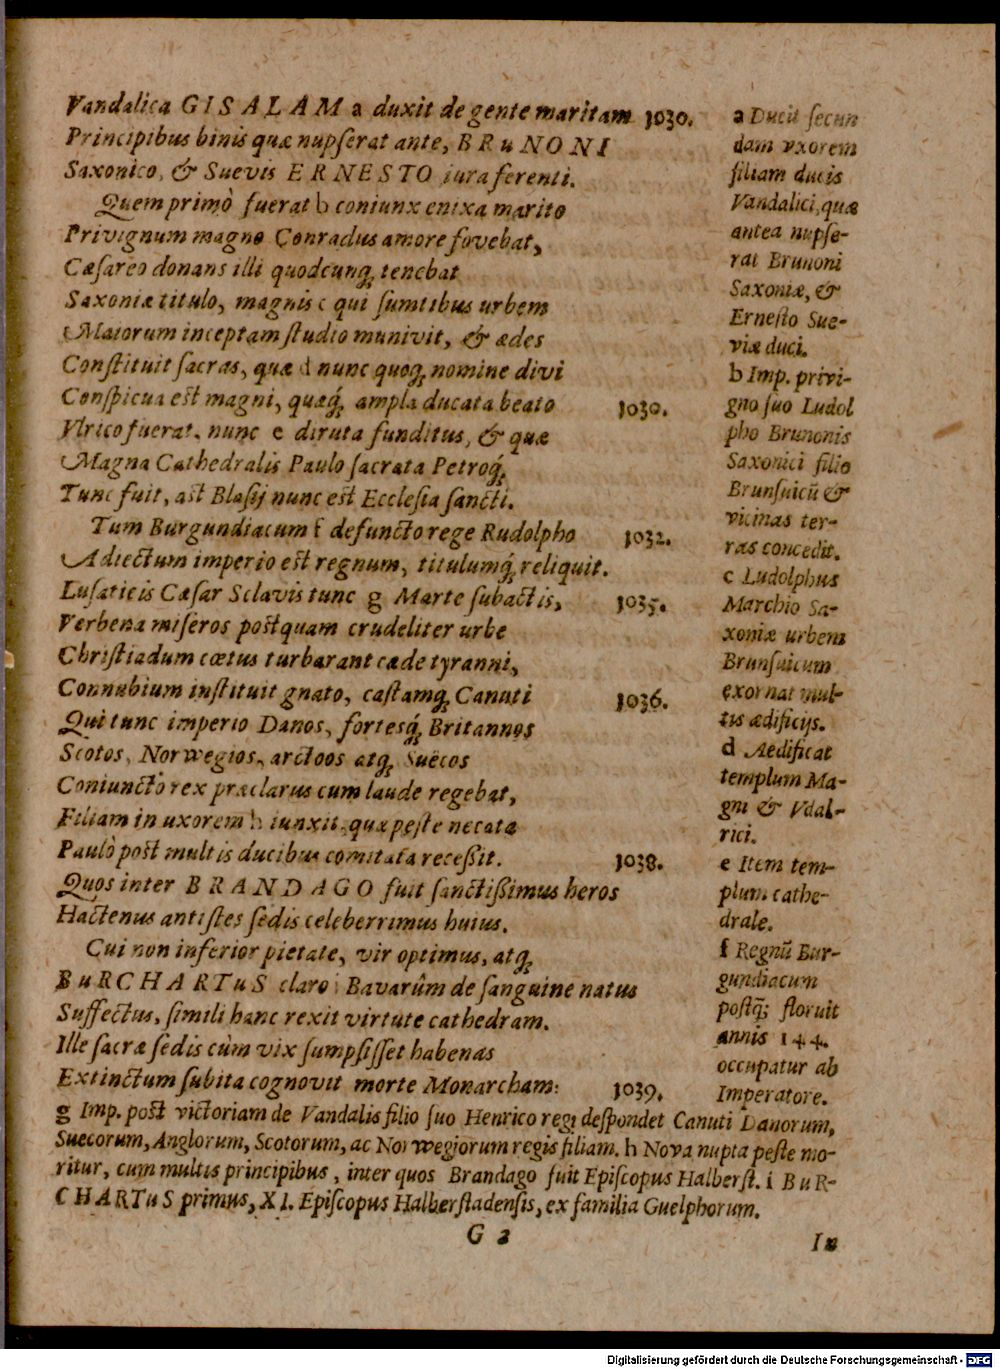 Vandalica GISALAM a duxit de gente maritam 1030.
Principibus binis quæ nupserat ante, BRuNONI
Saxonico, & Suevis ERNESTO iura ferenti.
Quem primò fuerat b coniunx enixa marito
Privignum magno Conradus amore fovebat,
Cæsareo donans illi quodcunq́; tenebat
Saxoniæ titulo, magnis c qui sumtibus urbem
Maiorum inceptam studio munivit, & ædes
Constituit sacras, quæ d nunc quoq́; nomine divi
Conspicua est magni, quæq́; ampla ducata beato 1030.
Vlrico fuerat, nunc e diruta funditus, & quæ
Magna Cathedralis Paulo sacrata Petroq́;
Tunc fuit, ast Blasij nunc est Ecclesia sancti.
Tum Burgundiacum f defuncto rege Rudolpho 1032.
Adiectum imperio est regnum, titulumq́; reliquit.
Lusaticis Cæsar Sclavis tunc g Marte subactis, 1035.
Verbena miseros postquam crudeliter urbe
Christiadum cœtus turbarant cæde tyranni,
Connubium instituit gnato, castamq́; Canuti 1036.
Qui tunc imperio Danos, fortesq́; Britannos
Scotos, Norwegios, arctoos atq́; Suëcos
Coniuncto rex præclarus cum laude regebat,
Filiam in uxorem h iunxit, quæ peste necata
Paulò post multis ducibus comitata recessit. 1038.
Quos inter BRANDAGO fuit sanctissimus heros
Hactenus antistes sedis celeberrimus huius.
Cui non inferior pietate, vir optimus, atq́;
BuRCHARTuS claro i Bavarûm de sanguine natus
Suffectus, simili hanc rexit virtute cathedram.
Ille sacræ sedis cùm vix sumpsisset habenas
Extinctum subita cognovit morte Monarcham: 1039.
a Ducit secun
dam vxorem
filiam ducis
Vandalici, quæ
antea nupse-
rat Brunoni
Saxoniæ, &
Ernesto Sue-
viæ duci.
b Imp. privi-
gno suo Ludol
pho Brunonis
Saxonici filio
Brunsuicū &
vicinas ter-
ras concedit.
c Ludolphus
Marchio Sa-
xoniæ urbem
Brunsuicum
exornat mul-
tis ædificijs.
d Aedificat
templum Ma-
gni & Vdal-
rici.
e Item tem-
plum cathe-
drale.
f Regnū Bur-
gundiacum
postq̃; floruit
annis 144.
occupatur ab
Imperatore.
g Imp. post victoriam de Vandalis filio suo Henrico regi despondet Canuti Danorum,
Suecorum, Anglorum, Scotorum, ac Norwegiorum regis filiam. h Nova nupta peste mo-
ritur, cum multis principibus, inter quos Brandago fuit Episcopus Halberst. i BuR-
CHARTuS primus, XI. Episcopus Halberstadensis, ex familia Guelphorum.
G 2
In
Digitalisierung gefördert durch die Deutsche Forschungsgemeinschaft - DFG